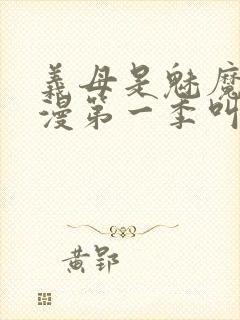 義母是魅魔
漫第一季叫
黄郢